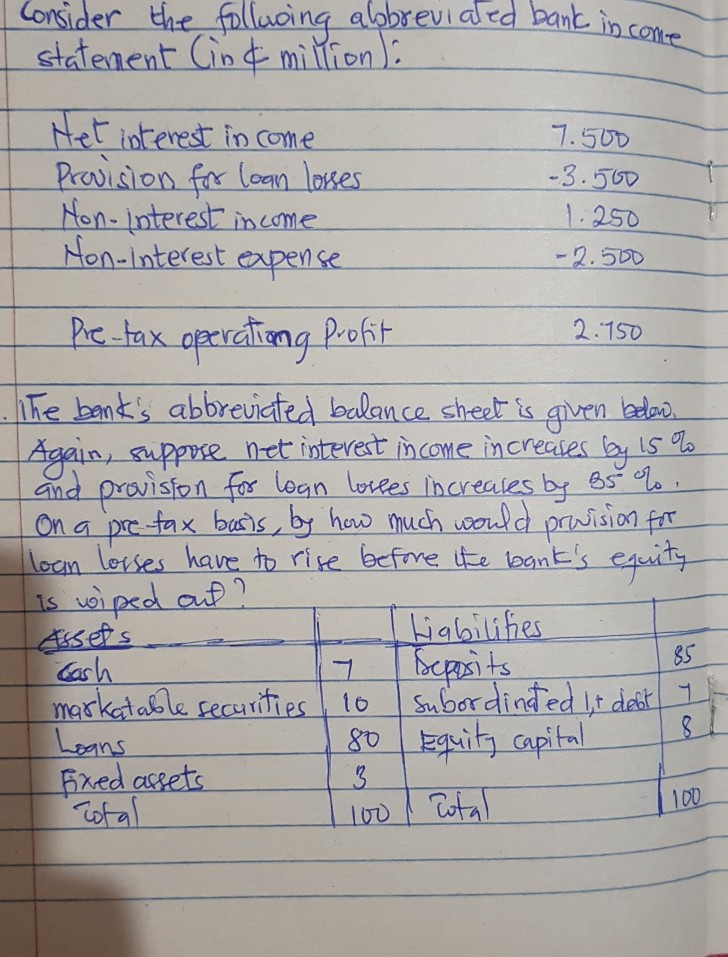 Consider the following abbreviated bank income
statement (in ¢ million):
Net interest income 7.500
Provision for loan losses -3.500
Non-interest income 1.250
Non-interest expense -2.500
Pre-tax operationg Profit 2.750
. The bank's abbreviated balance sheet is given below.
Again, suppose net interest income increases by 15 %
and provision for loan losses increases by 85 %.
On a pre-tax basis, by how much would provision for
loan losses have to rise before the bank's equity
is wiped out?
Assets Liabilities
Cash 7 Deposits 85
markatable securities 10 Subordinated l,t debt 7
Loans 80 Equity capital 8
Fixed assets 3
Total 100 Total 100